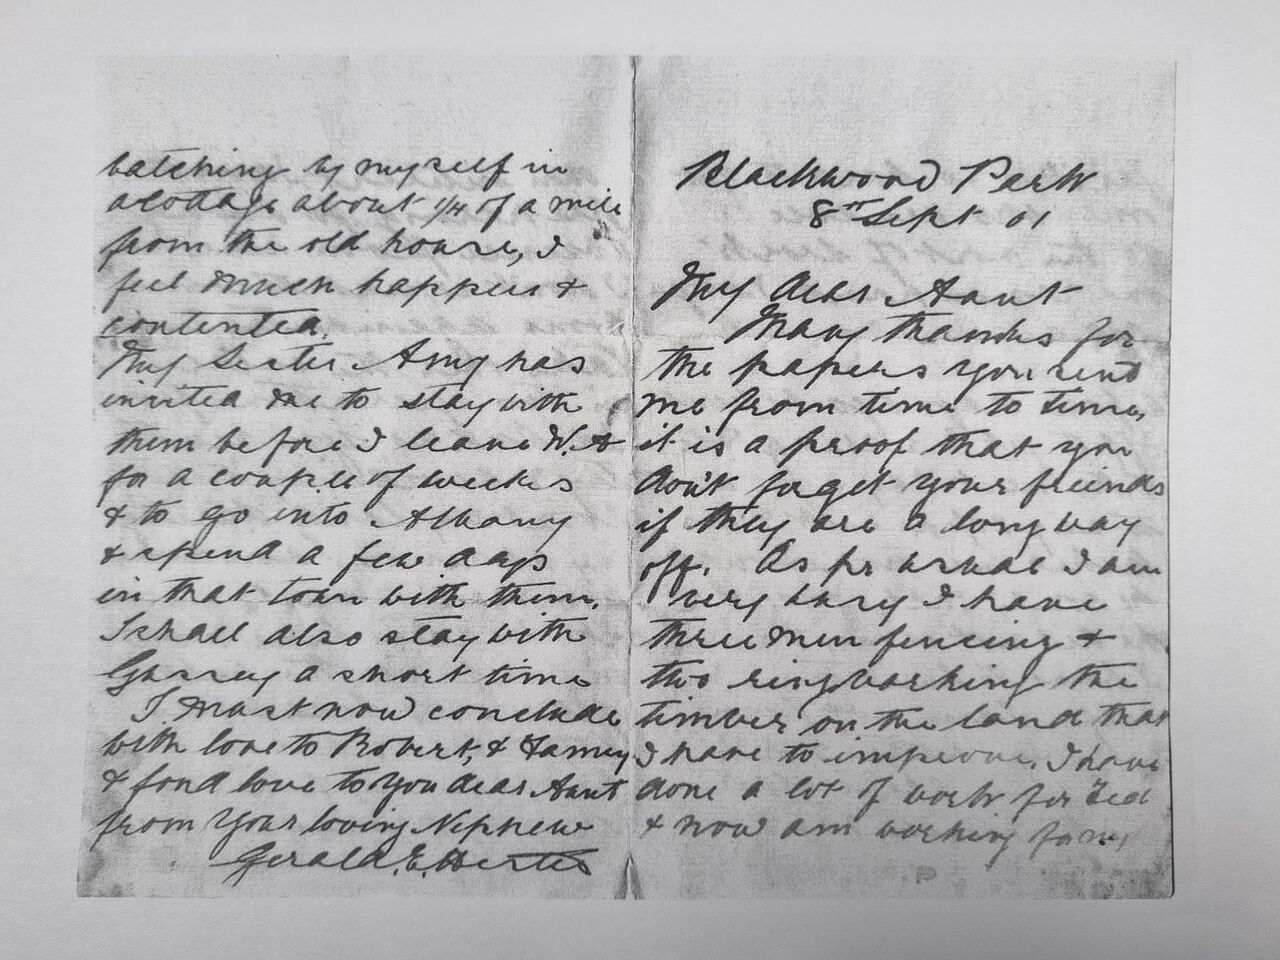 Blackwood Park
8th Sept 01
My dear Aunt
Many thanks for
the papers you send
me from time to time,
it is a proof that you
don't forget your friends
if they are a long way
off. As pr usual I am
very busy I have
three men fencing &
two ringbarking the
timber on the land that
I have to improve, I have
done a lot of work for Ted
& now am working for my
batching by myself in
a cottage about 1/4 of a mile
from the old house, I
feel much happier &
contented.
My Sister Amy has
invited me to stay with
them before I leave W.A
for a couple of weeks
& to go into Albany
& spend a few days
in that town with them.
I shall also stay with
a short time
I must now conclude
with love to Robert, &
& fond love to you dear Aunt
from your loving Nephew
Gerald. E.